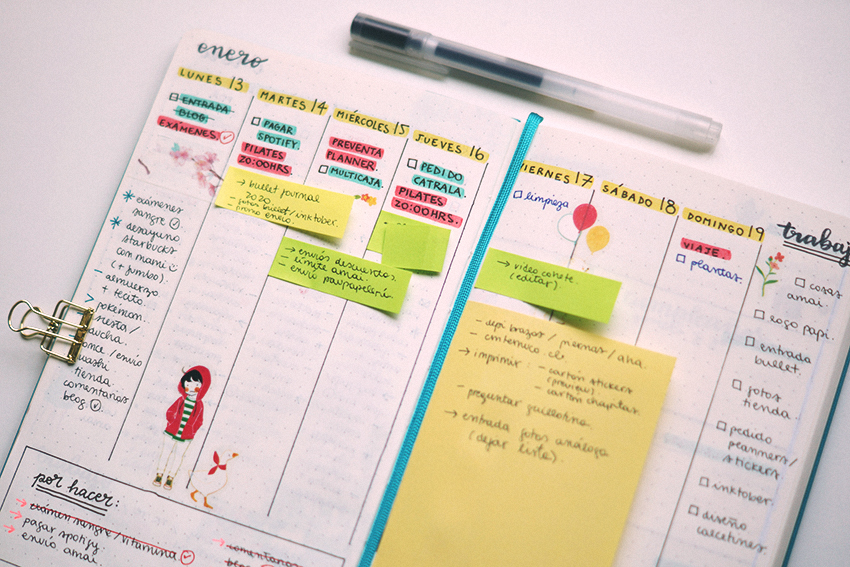 enero
LUNES 13
ENTRADA
BLOG.
EXÁMENES.
exámenes
sangre
desayuno
starbucks
con mami
(+ jumbo).
almuerzo
+ tecito.
pokémon.
siesta/
ducha.
once/envío
washi
tienda.
comentarios
blog
MARTES 14
PAGAR
SPOTIFY.
PILATES
20:00HRS.
→ bullet journal
2020.
- fotos bullet/inktober.
- promo enero.
MIÉRCOLES 15
PREVENTA
PLANNER.
MULTICAJA.
→ envíos descuentos.
- límite amai.
- envío
JUEVES 16
PEDIDO
CATRALA.
PILATES
20:00HRS.
VIERNES 17
limpieza
→ video cohete.
(editar).
- depi brazos/piernas/
→ imprimir: - cartón stickers
(preview)
- cartón chapitas.
- preguntar guillotina.
→ entrada fotos análoga
(dejar lista).
SÁBADO 18
DOMINGO 19
VIAJE.
plantas.
trabaj
cosas
amai.
logo papi.
entrada
bullet.
fotos
tienda.
pedido
planners/
stickers
inktober.
diseño
calcetines.
por hacer:
→ exámen sangre/vitamina
→ pagar spotify.
→ envío amai.
→ comentarios
blog